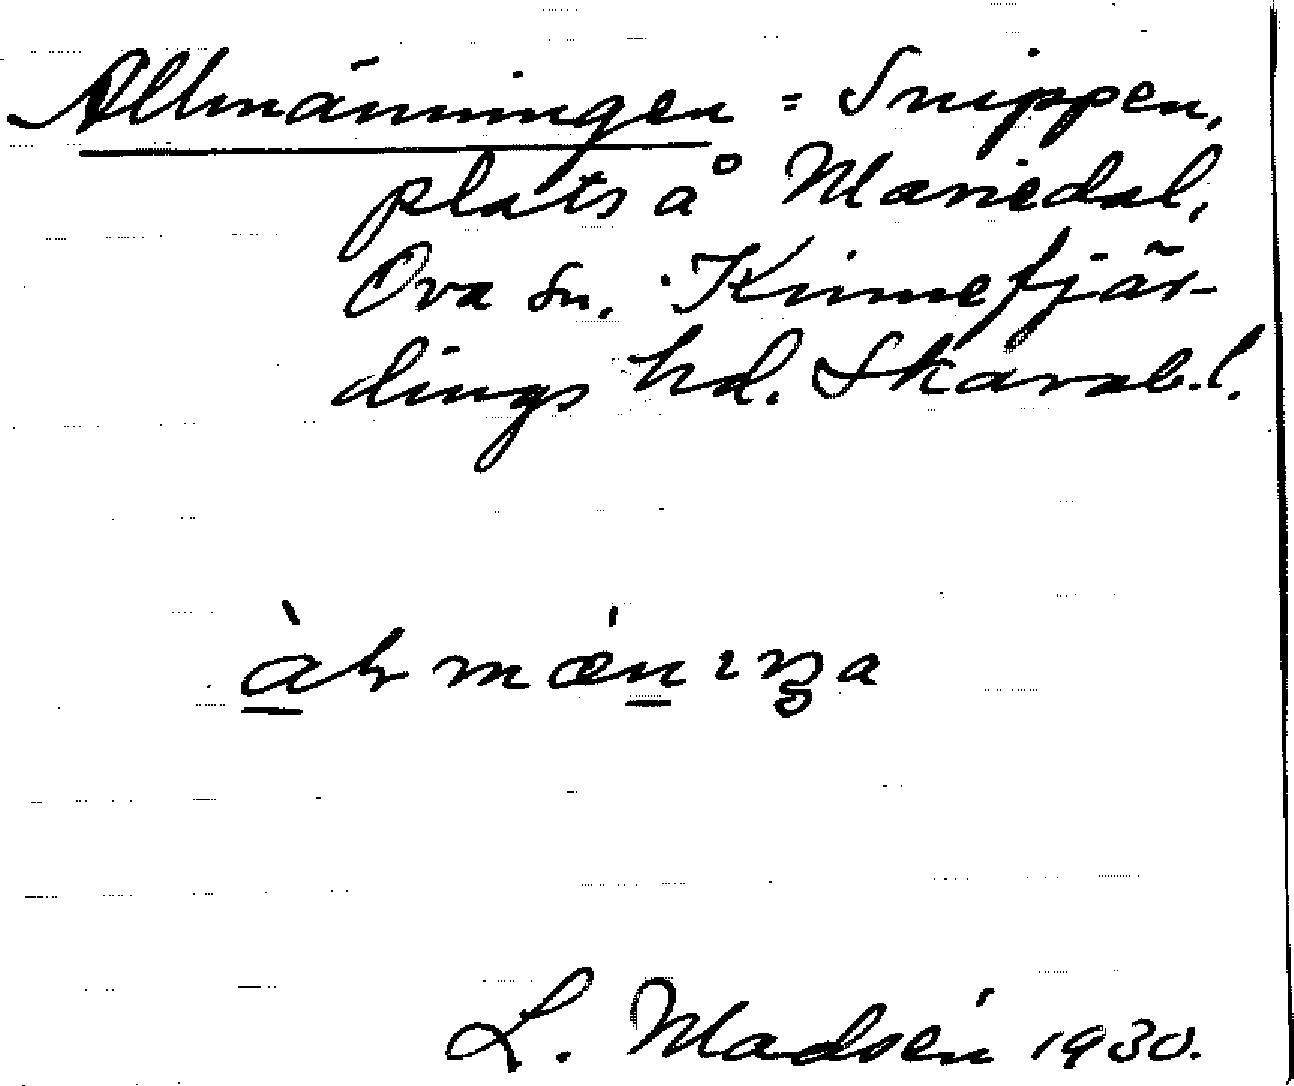 Allmänningen = Snippen,
plats å Mariedal,
Ova sn. Kinnefjär-
dings hd. Skarab. l.
L. Madsén 1930.